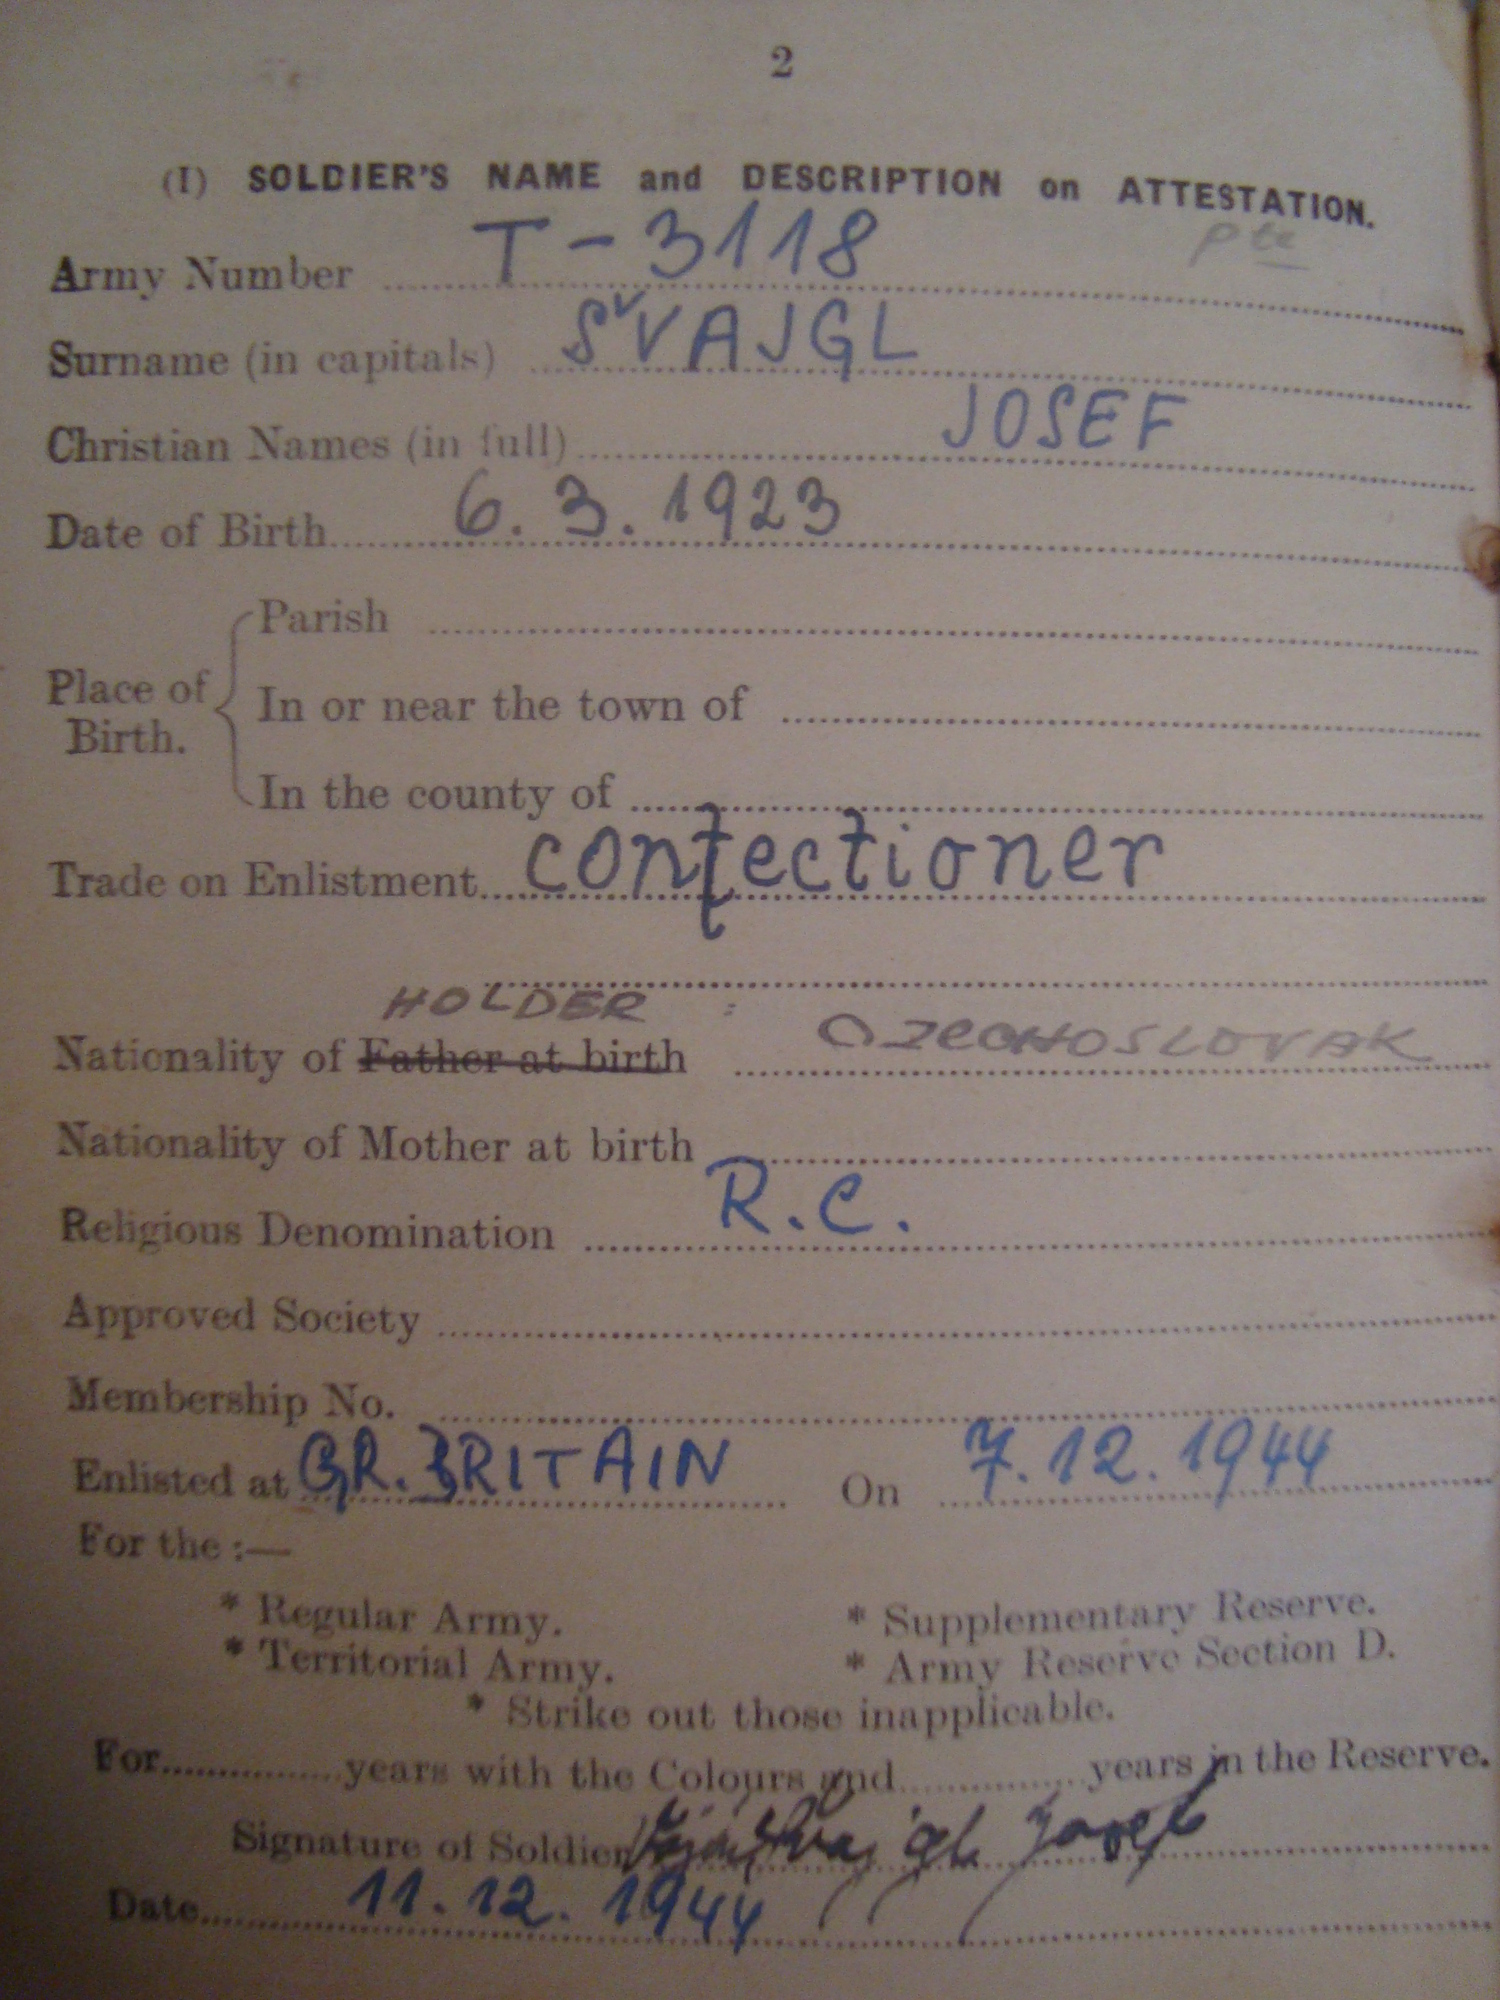 2
(I) SOLDIER'S NAME and DESCRIPTION on ATTESTATION.
Pte
Army Number T-3118
Surname (in capitals) ŠVAJGL
Christian Names (in full) JOSEF
Date of Birth 6. 3. 1923
Place of Birth.
Parish
In or near the town of
In the county of
Trade on Enlistment confectioner
HOLDER :
Nationality of Father at birth CZECHOSLOVAK
Nationality of Mother at birth
Religious Denomination R.C.
Approved Society
Membership No.
Enlisted at GR. BRITAIN On 7.12.1944
For the :—
* Regular Army. * Supplementary Reserve.
* Territorial Army. * Army Reserve Section D.
* Strike out those inapplicable.
For years with the Colours and years in the Reserve.
Signature of Soldier Švajgl Josef
Date 11.12.1944